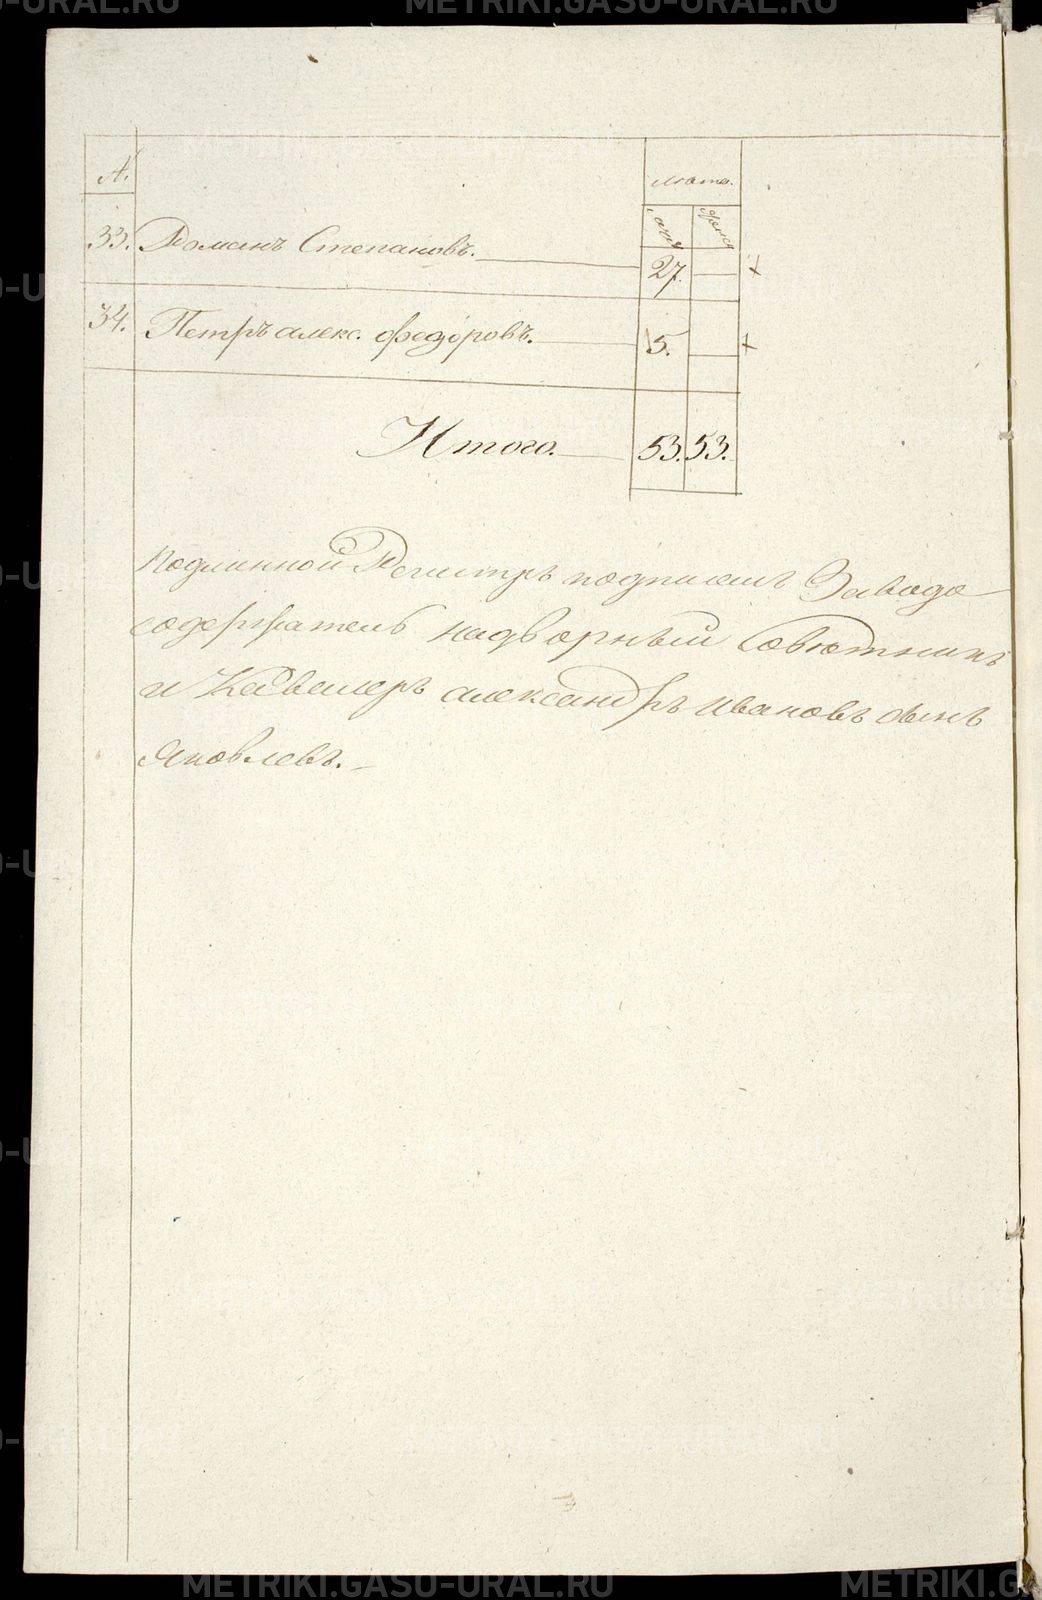 METRIKI.GASU-URAL.RU
№.
лѣта.
33. Романъ Степановъ. 27. +
34. Петръ алекс. федоровъ. 15. +
Итого. 53. 53.
подлинной Регистръ подписалъ Завода
содержатель надворный Совѣтникъ
и Кавалеръ александръ Ивановъ сынъ
Яковлевъ.
METRIKI.GASU-URAL.RU